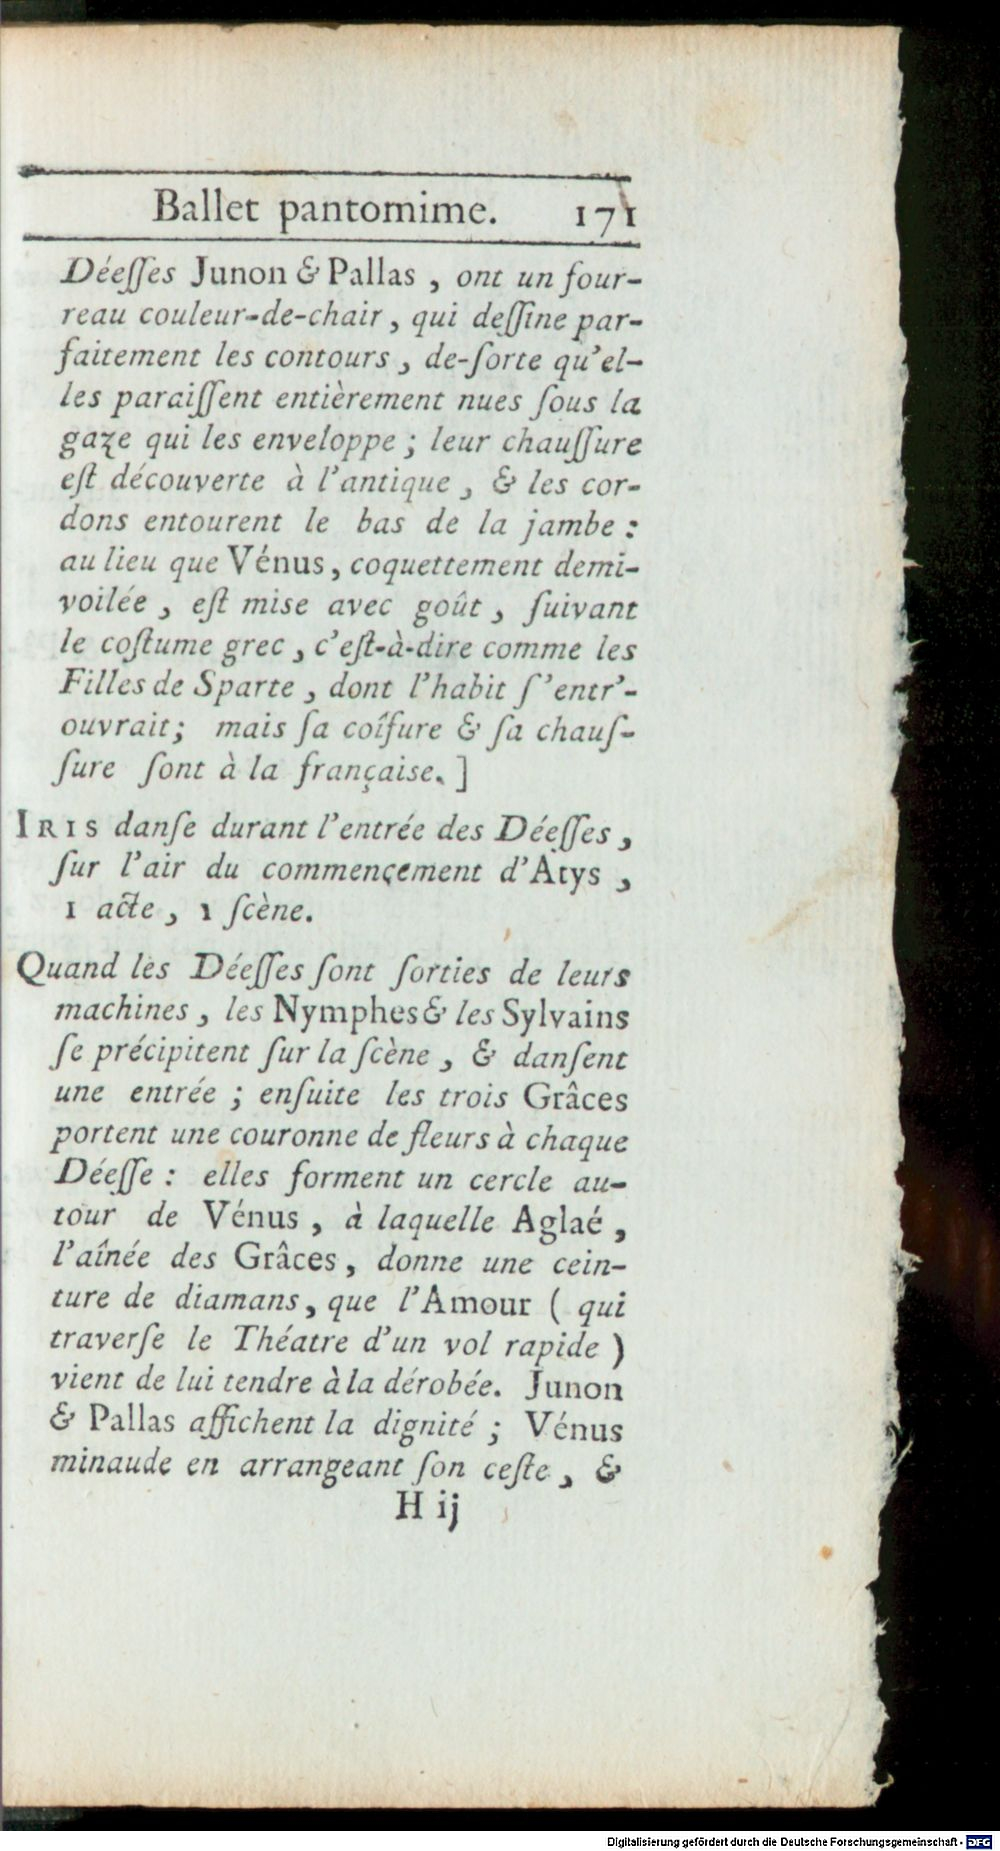 Ballet pantomime. 171
Déeſſes Junon & Pallas, ont un four-
reau couleur-de-chair, qui deſſine par-
faitement les contours, de-ſorte qu'el-
les paraiſſent entièrement nues ſous la
gaze qui les enveloppe; leur chauſſure
eſt découverte à l'antique, & les cor-
dons entourent le bas de la jambe:
au lieu que Vénus, coquettement demi-
voilée, eſt mise avec goût, ſuivant
le coſtume grec, c'eſt-à-dire comme les
Filles de Sparte, dont l'habit ſ'entr'-
ouvrait; mais ſa coîfure & ſa chauſ-
ſure ſont à la française.]
IRIS danſe durant l'entrée des Déeſſes,
ſur l'air du commençement d'Atys,
1 acte, 1 ſcène.
Quand les Déeſſes ſont ſorties de leurs
machines, les Nymphes & les Sylvains
ſe précipitent ſur la ſcène, & danſent
une entrée; enſuite les trois Grâces
portent une couronne de fleurs à chaque
Déeſſe: elles forment un cercle au-
tour de Vénus, à laquelle Aglaé,
l'aînée des Grâces, donne une cein-
ture de diamans, que l'Amour (qui
traverſe le Théatre d'un vol rapide)
vient de lui tendre à la dérobée. Junon
& Pallas affichent la dignité; Vénus
minaude en arrangeant ſon ceſte, &
H ij
Digitalisierung gefördert durch die Deutsche Forschungsgemeinschaft - DFG